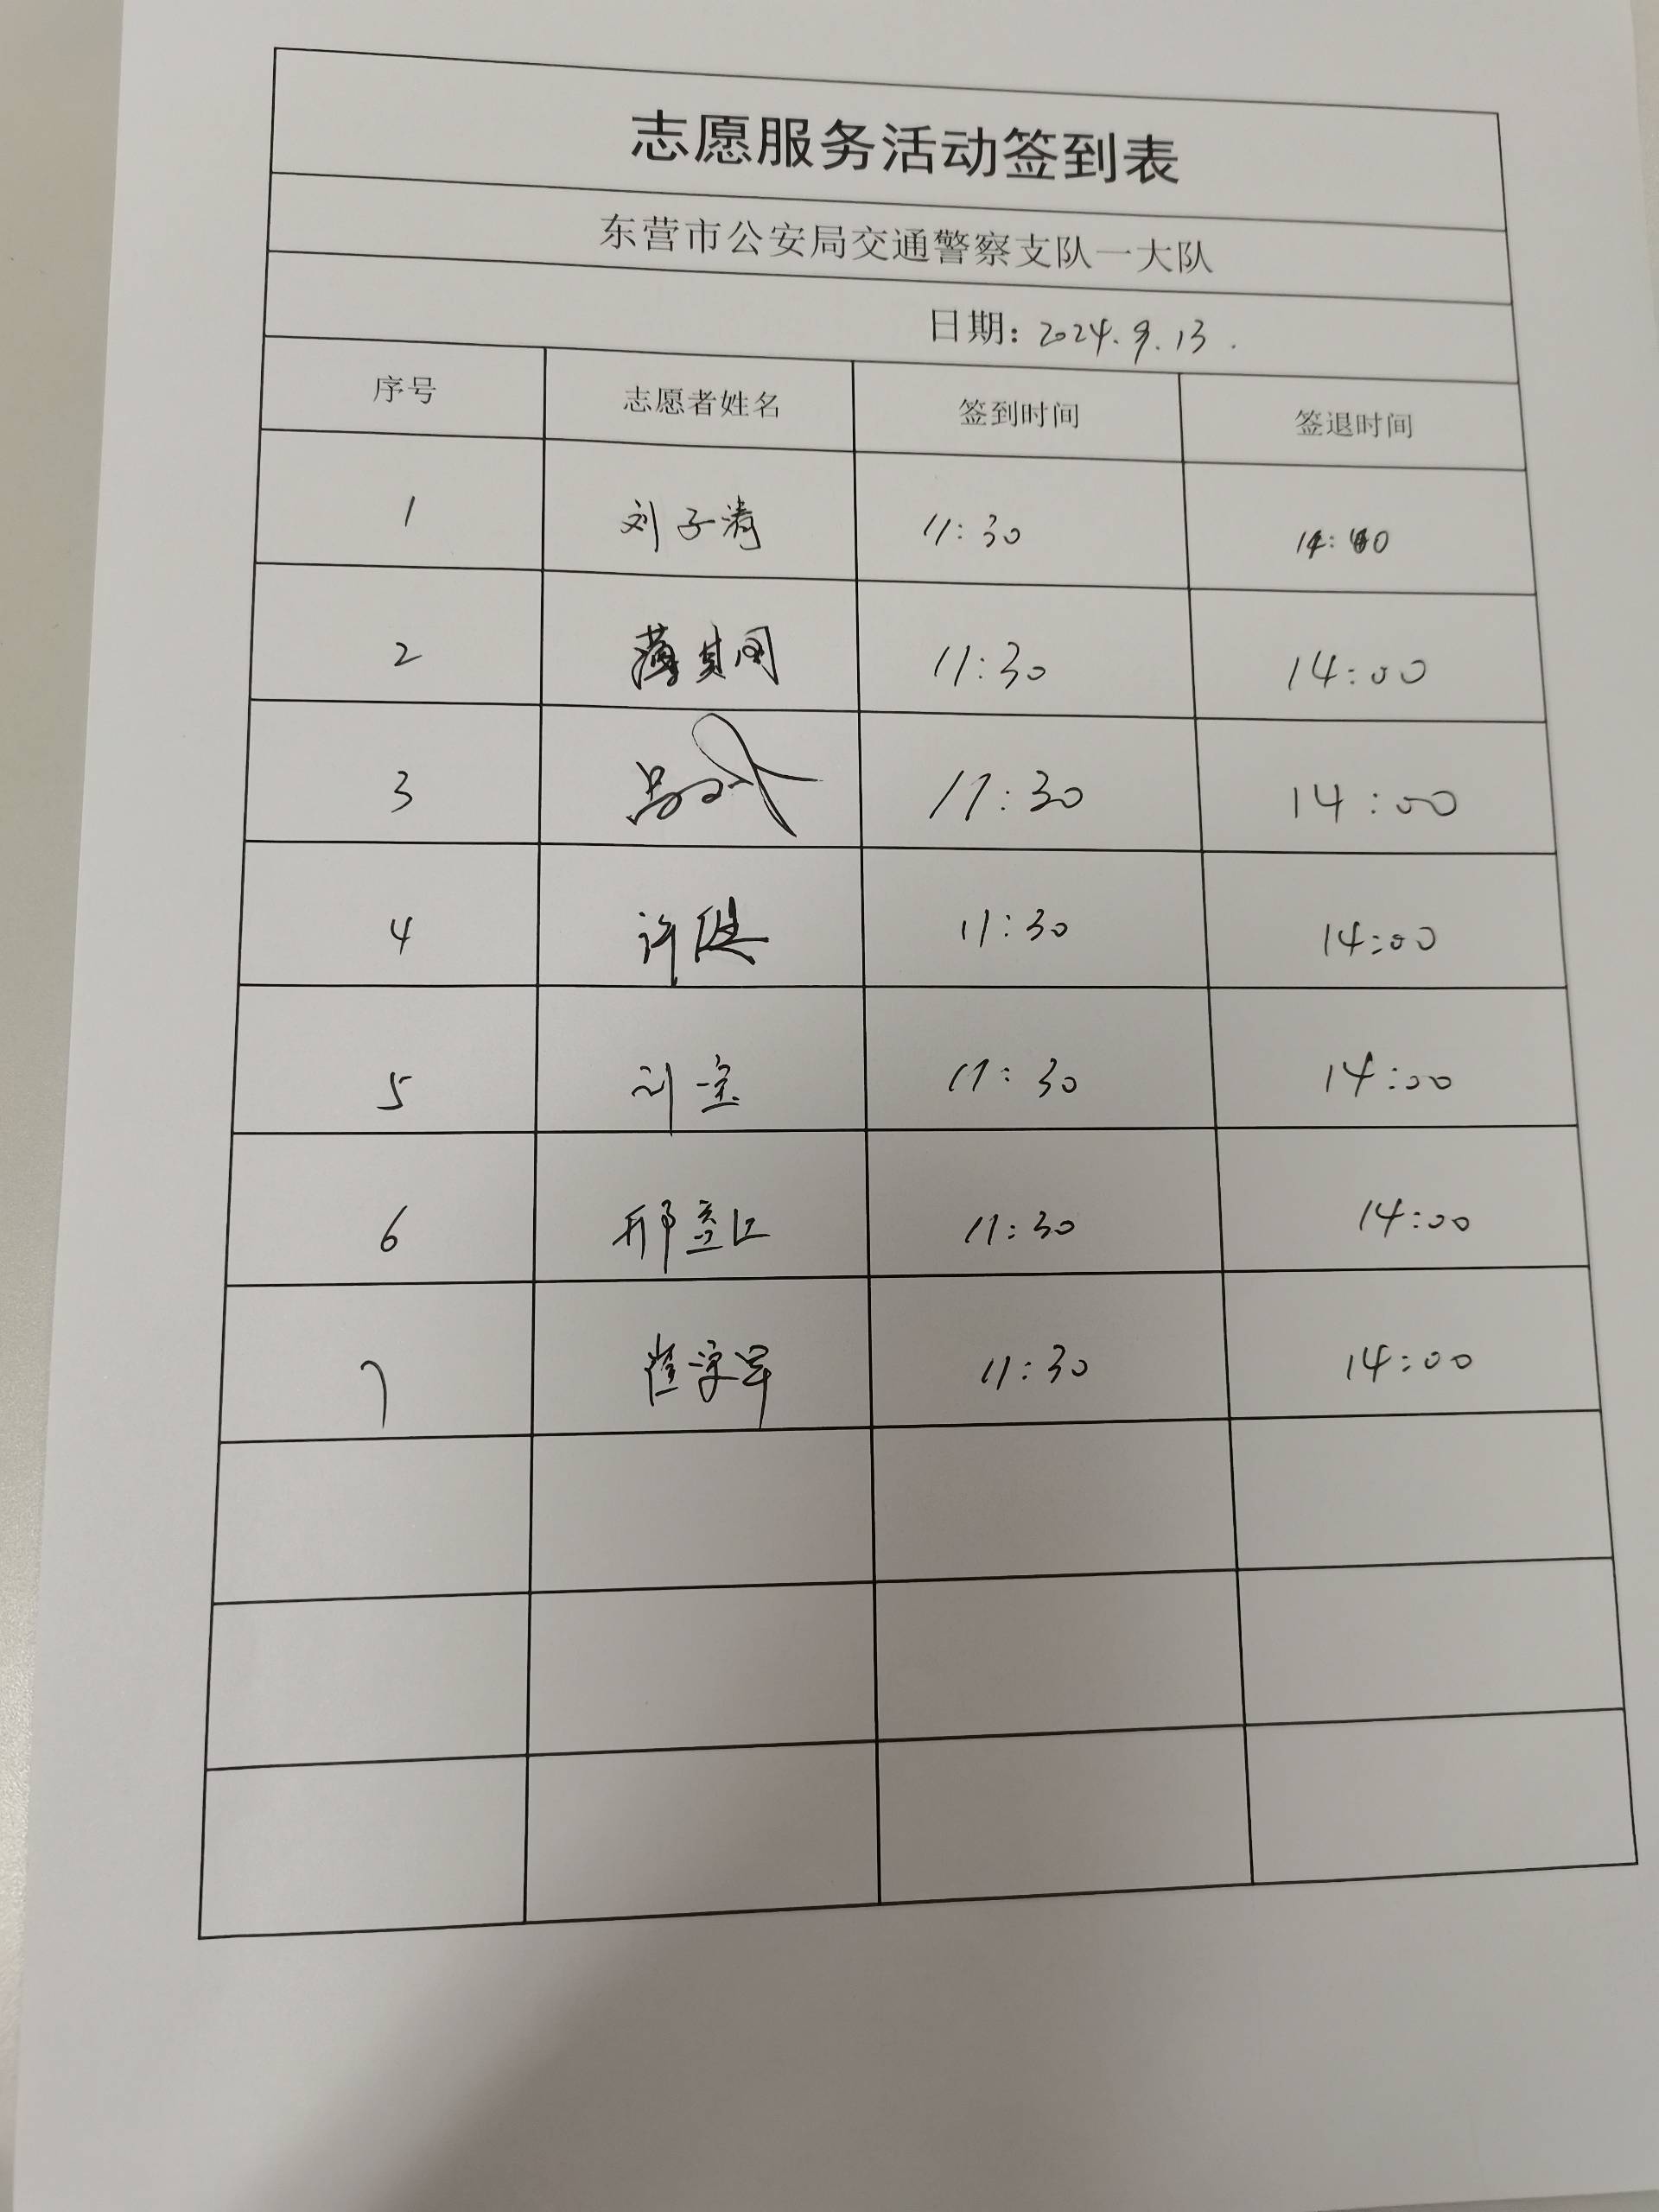 志愿服务活动签到表
东营市公安局交通警察支队一大队
日期：2024.9.13.
序号 志愿者姓名 签到时间 签退时间
1 刘子清 11:30
2 11:30 14:00
3 11:30 14:00
4 许健 11:30 14:00
5 刘宝 11:30 14:00
6 11:30 14:00
7 11:30 14:00